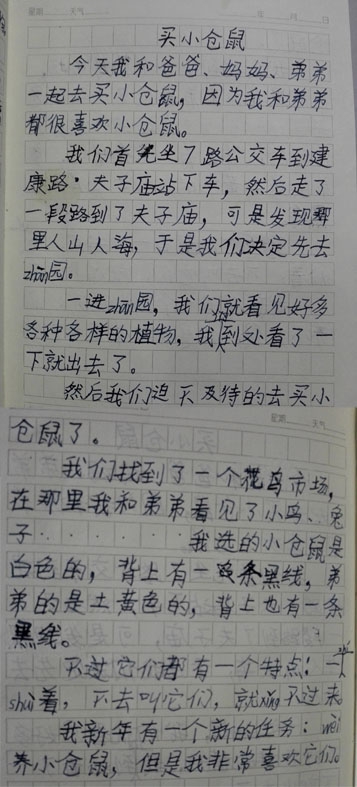 星期 天气 年 月 日
买小仓鼠
今天我和爸爸、妈妈、弟弟
一起去买小仓鼠，因为我和弟弟
都很喜欢小仓鼠。
我们首先坐7路公交车到建
康路·夫子庙站下车，然后走了
一段路到了夫子庙，可是发现那
里人山人海，于是我们决定先去
zhān园。
一进zhān园，我们就看见好多
各种各样的植物，我们到处看了一
下就出去了。
然后我们迫不及待的去买小
星期 天气
仓鼠了。
我们找到了一个花鸟市场，
在那里我和弟弟看见了小鸟、兔
子······我选的小仓鼠是
白色的，背上有一条黑线，弟
弟的是土黄色的，背上也有一条
黑线。
不过它们都有一个特点：一
shuì着，不去叫它们，就xǐng不过来
我新年有一个新的任务：wèi
养小仓鼠，但是我非常喜欢它们。